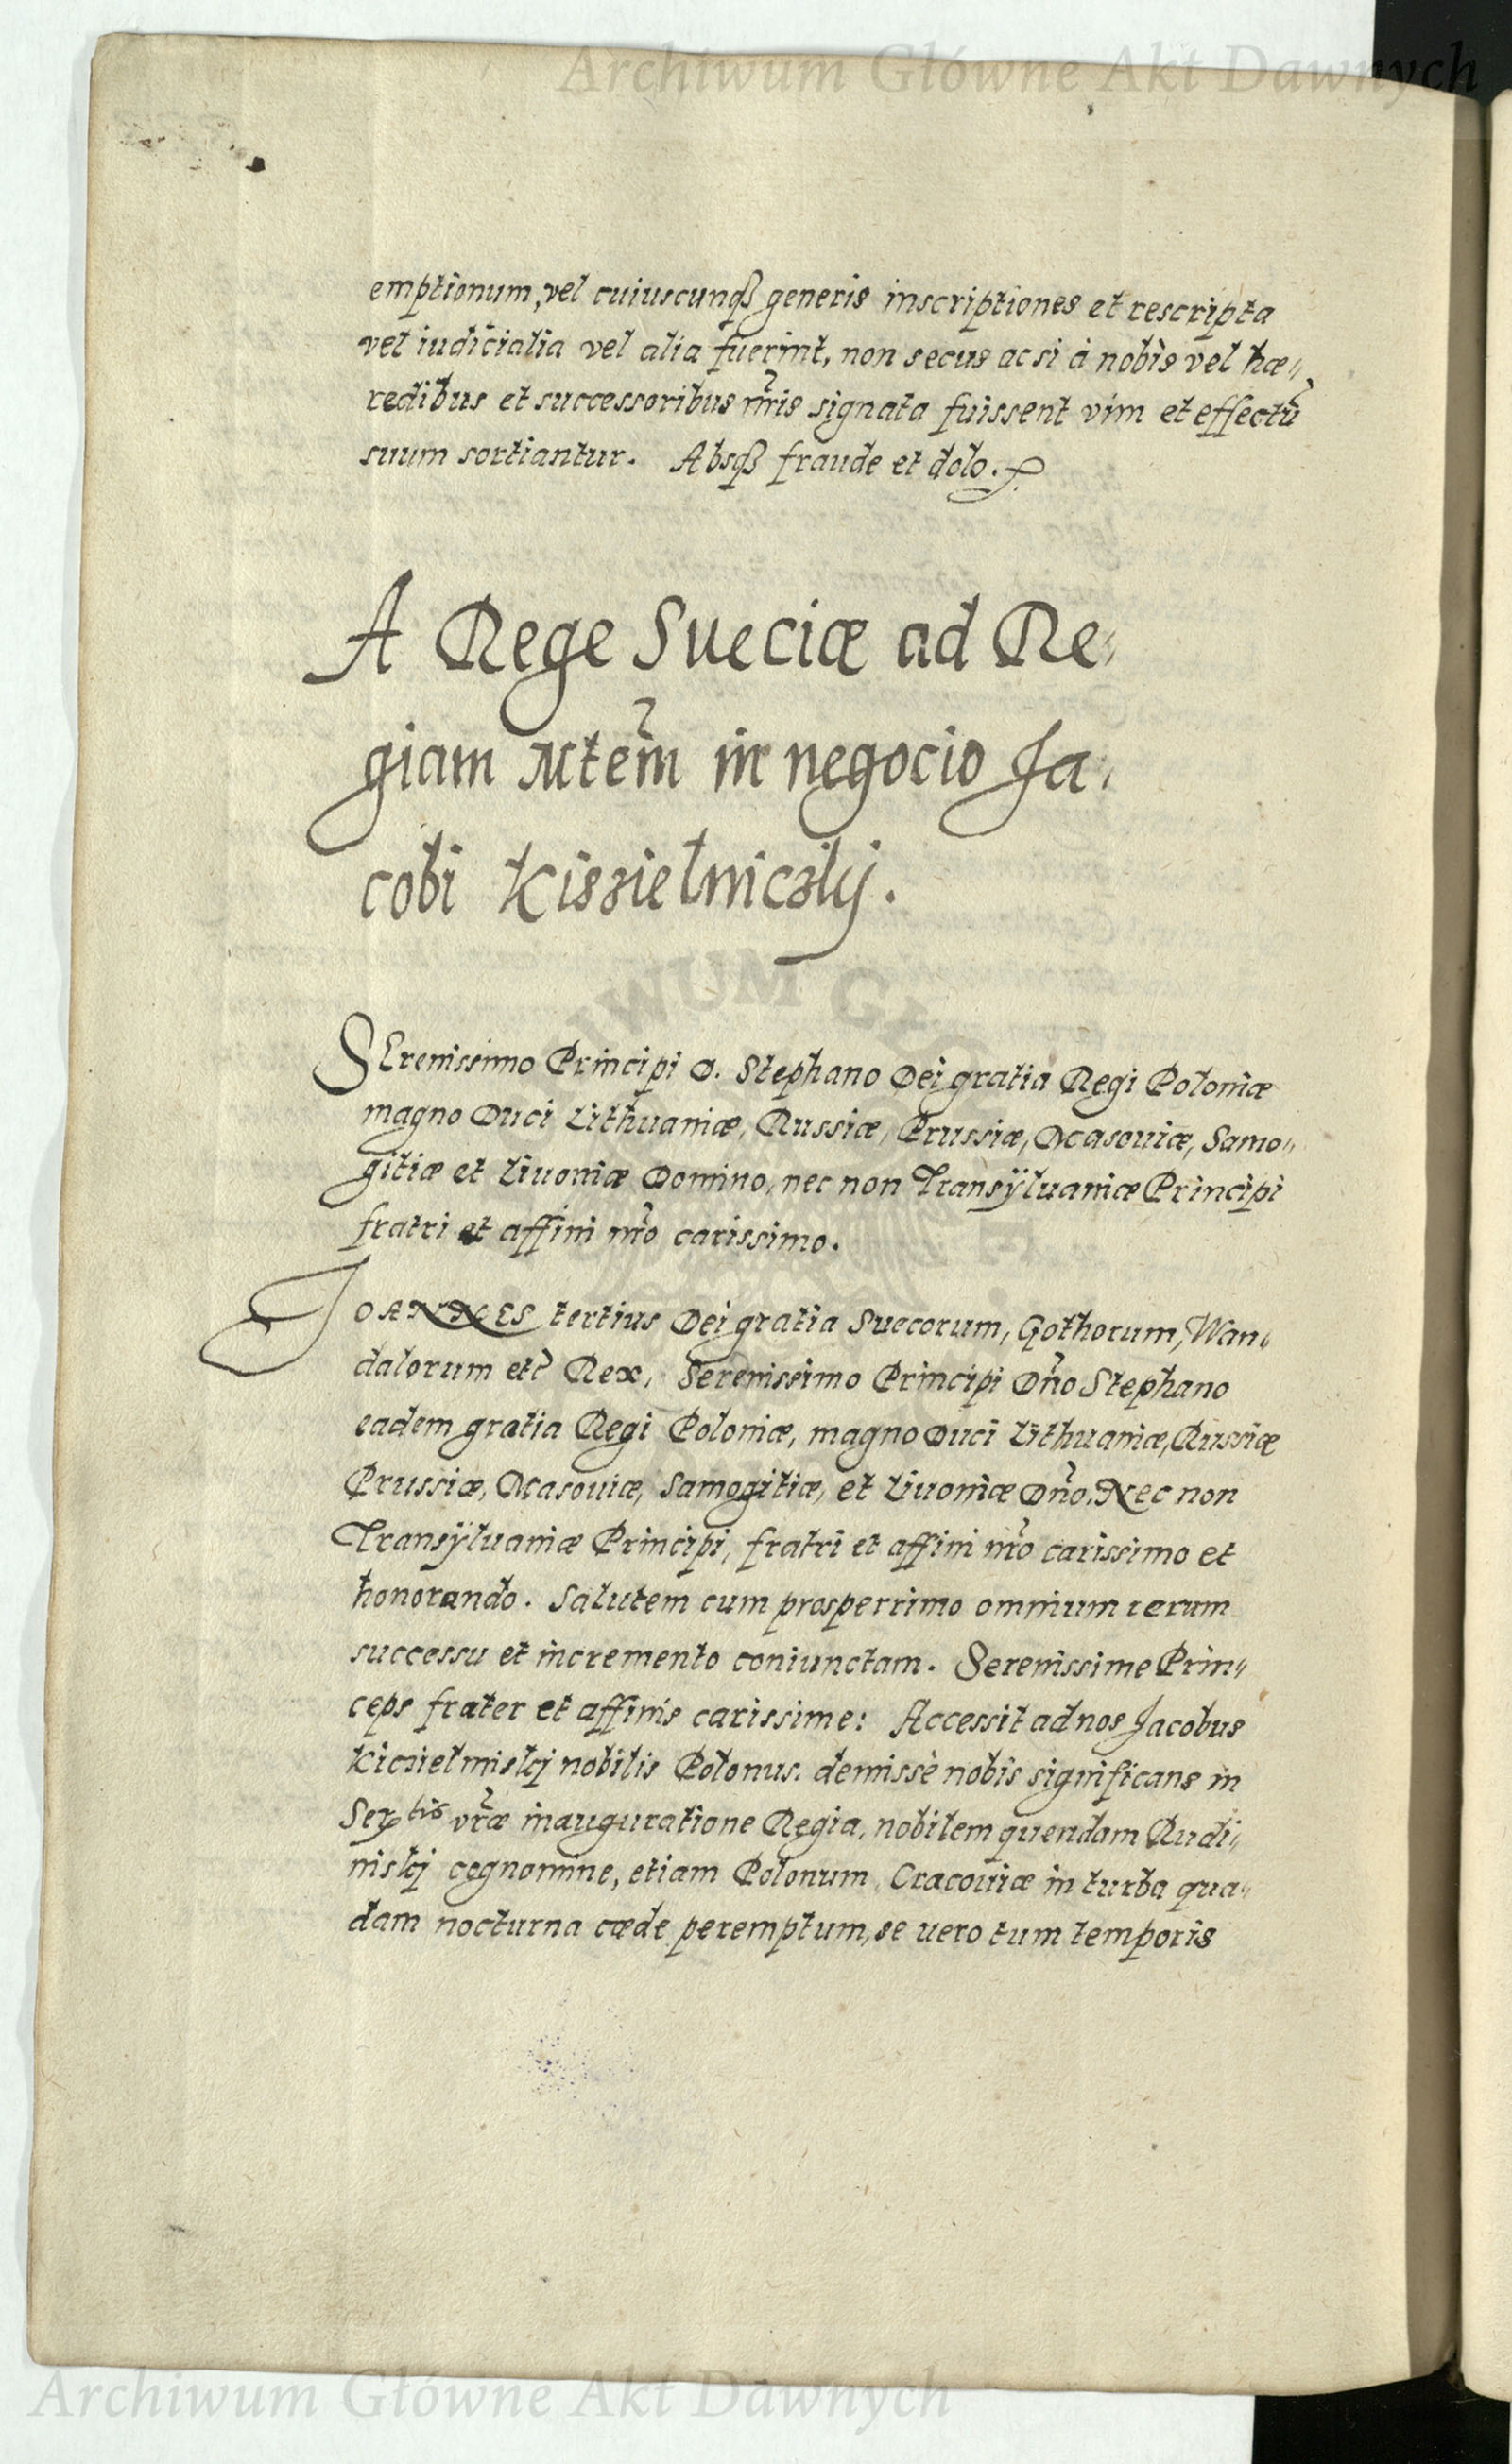 Archiwum Główne Akt Dawnych
emptionum, vel cuiuscunqꝫ generis inscriptiones et rescripta
vel iudicialia vel alia fuerint, non secus ac si à nobis vel hæ„
redibus et successoribus nr̃is signata fuissent vim et effectũ
suum sortiantur. Absqꝫ fraude et dolo.
A Rege Sueciæ ad Re„
giam Mtem̃ in negocio Ja„
cobi
SErenissimo Principi D. Stephano Dei gratia Regi Poloniæ
magno Duci Lithuaniæ, Russiæ, Prussiæ, Masouiæ, Samo„
gitiæ et Liuoniæ Domino, nec non Transÿluaniæ Principi
fratri et affini nr̃o carissimo.
JOANNES tertius Dei gratia Suecorum, Gothorum, Wan„
dalorum etc̃ Rex, Serenissimo Principi Dño Stephano
eadem gratia Regi Poloniæ, magno Duci Lithuaniæ, Russiæ
Prussiæ, Masouiæ, Samogitiæ, et Liuoniæ Dño, Nec non
Transÿluaniæ Principi, fratri et affini nr̃o carissimo et
honorando. Salutem cum prosperrimo omnium rerum
successu et incremento coniunctam. Serenissime Prin„
ceps frater et affinis carissime: Accessit ad nos Jacobus
nobilis Polonus. demissè nobis significans in
Serᵗⁱˢ vr̃æ inauguratione Regia, nobilem quendam Rudi„
niskj cognomine, etiam Polonum, Cracouiæ in turba qua„
dam nocturna cæde peremptum, se uero tum temporis
Archiwum Główne Akt Dawnych